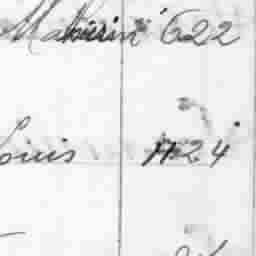 Mathurin 622
Louis 1124